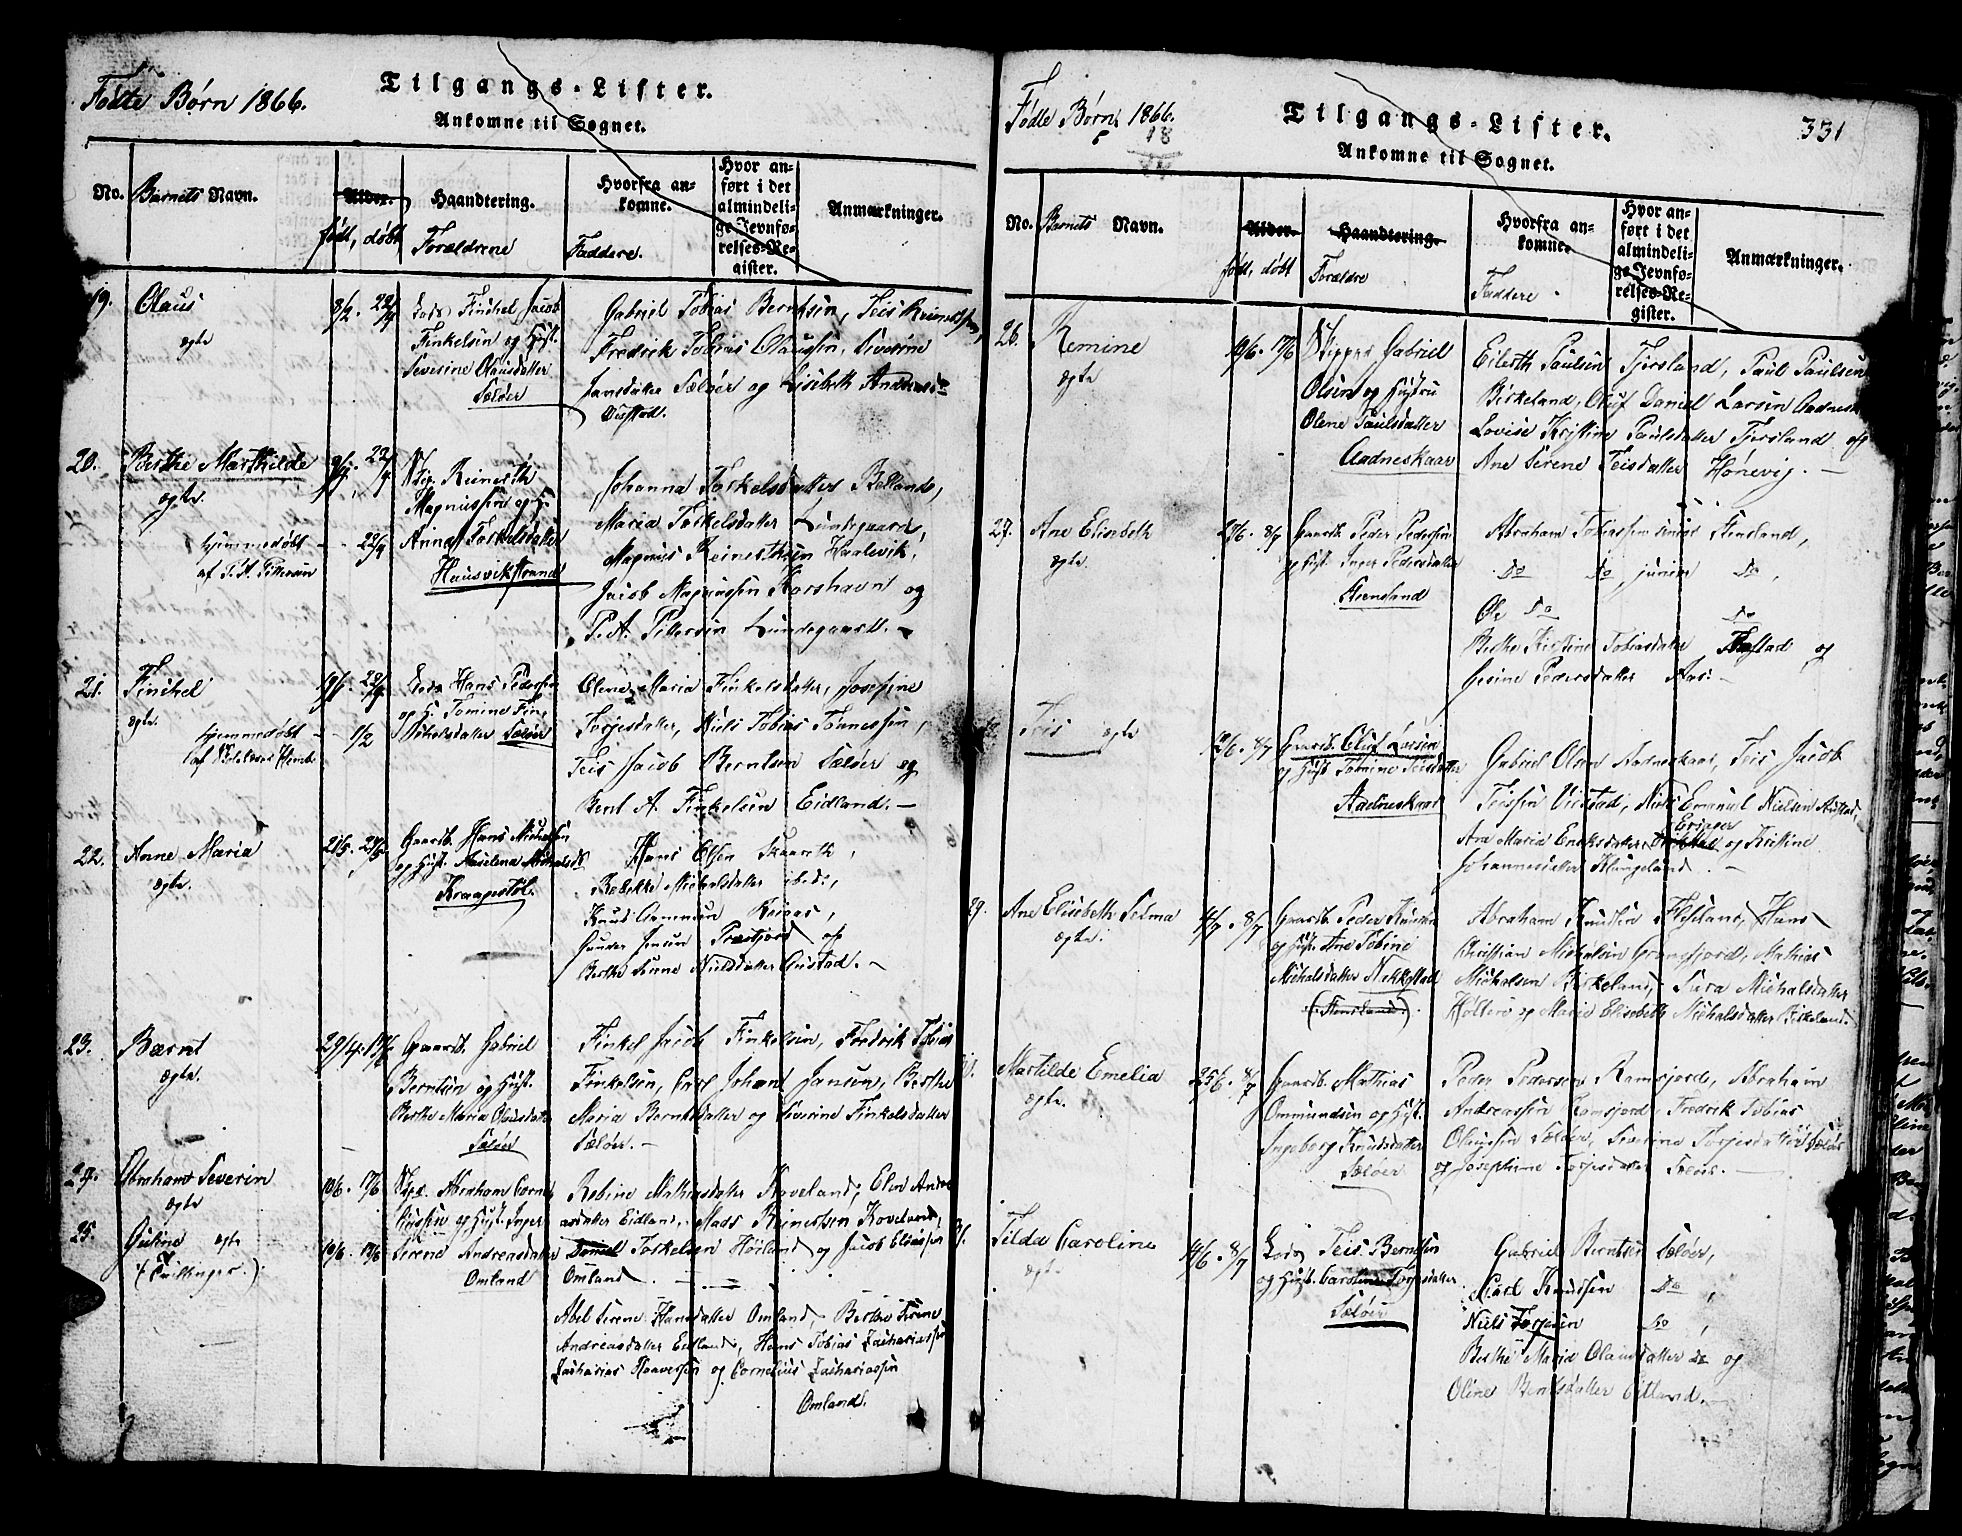 Fødte Børn 1866.
Tilgangs-Lister.
Ankomne til Sognet.
No.
Barnets Navn.
Alder.
født, døbt
Haandtering.
Forældrene
Hvorfra ankomne.
Faddere.
Hvor anført i det almindelige Jevnførelses-Register.
Anmærkninger.
19.
Olaus
ægte
8/2. 22/4
Lods Finchel Jacob
Finkelsen og Hust.
Severine Olausdatter
Sælöer
Gabriel Tobias Berntsen, Teis Reinertsen,
Fredrik Tobias Olaussen, Severine
Jansdatter Sælöer og Lisebeth Andreasd.
20.
Berthe Marthilde
ægte.
hjemmedöbt
af P. A. Pettersen
22/4
Skp. Reinerth
Magnussen og H.
Anna Torkelsdatter
Hausvikstrand
Johanna Torkelsdatter
Maria Torkelsdatter Lundegaard,
Magnus Reinerthsen Haalevik,
Jacob Magnussen Korshavn og
P. A. Pettersen Lundegaard.
21.
Finchel
ægte.
hjemmedöbt
af
1/2
22/4
Lods Hans Pedersen
og H. Tomine Fin-
chelsdatter Sælöer
Olene Maria Finkelsdatter, Josefine
Torjesdatter, Niels Tobias Tönnessen,
Teis Jacob Berntsen Sælöer og
Bent A. Finkelsen Eidland.
22.
Anne Maria
ægte.
21/5.
Gaardb. Hans Michalsen
og Hust. Aaselena Michalsd.
Kraagestöl.
Hans Olsen Skaareth,
Rebekke Michalsdatter ibed.,
Knud Aamunsen
Gunder Jensen Præstfjord og
Berthe Serine Nielsdatter Austad.
23.
Bærnt
ægte.
29/4. 17/6
Gaardb. Gabriel
Berntsen og Hust.
Berthe Maria Olausdatter
Sælöer
Finkel Jacob Finkelsen, Fredrik Tobias
Finkelsen, Carl Johan Jansen, Berthe
Maria Berntsdatter og Severine Finkelsdatter
Sælöer.
24.
Abraham Severin
ægte
10/6. 17/6
Skpr. Abraham Corne-
liussen og Hust. Inger
Serene Andreasdatter
Omland
Rebine Mathiasdatter Koveland, Elen Andre-
asdatter Eidland, Mads Reinertsen Koveland,
Daniel Torkelsen Höiland og Jacob Eliassen
Omland.
25.
ægte
(Tvillinger.)
10/6. 17/6
Abel Serene Hansdatter Omland, Berthe Serene
Andreasdatter Eidland, Hans Tobias Zachariassen
Zacharias Haaversen og Cornelius Zachariassen
Omland.
Fødte Børn 1866.
18
Tilgangs-Lister.
Ankomne til Sognet.
331
No.
Barnets Navn.
Alder.
født, døbt
Haandtering.
Forældre
Hvorfra ankomne.
Faddere
Hvor anført i det almindelige Jevnførelses-Register.
Anmærkninger.
26.
Remine
ægte
17/6
Skipper Gabriel
Olsen og Hustru
Olene Paulsdatter
Aadneskaar
Eilerth Paulsen Tjersland, Paul Paulsen
Birkeland, Oluf Daniel Larsen Aadnesk
Lovise Kristine Paulsdatter Tjersland og
Ane Serene Teisdatter Hönevig.
27.
Ane Elisebeth
ægte.
8/7
Gaardb. Peder Pedersen
og Hust. Inger Pedersdatter
Stensland
Abraham Tobiassen senior Stensland,
Do Do junior Do,
Ole Do Do
Berthe Kirstine Tobiasdatter og
Gesine Pedersdatter Aas.
Teis ægte
12/6. 8/7
Gaardb. Oluf Larsen
og Hust. Tomine Teisdatter
Aadneskaar
Gabriel Olsen Aadneskaar, Teis Jacob
Teissen Vrestad, Niels Emanuel Nielsen Austad,
Ana Maria Eriksdatter Eringer og Kristine
Johannesdatter Klungeland.
29.
Ane Elisebeth Selma
ægte.
4/7. 8/7
Gaardb. Peder Knudsen
og Hust. Ane Tobine
Michalsdatter Nekkestad
(Stensland)
Abraham Knudsen Hans
Christian Michalsen Mathias
Michalsen Birkeland, Sara Michalsdatter
og Marie Elisebeth Michalsdatter Birkeland.
Martilde Emelia
ægte.
25/6. 8/7
Gaardb. Mathias
Ommundsen og Hust.
Ingeborg Knudsdatter
Sælöer
Peder Pedersen Ramsfjord, Abraham
Andreassen Ramsfjord, Fredrik Tobias
Olaussen Sælöer, Severine Torjesdatter Sælöer
og Josephine Torjesdatter Sælöer.
31.
Tilda Caroline
ægte.
14/6. 8/7
Lods Teis Berntsen
og Hust. Caroline Torjesdatter
Sælöer
Gabriel Berntsen Sælöer,
Carl Knudsen Do,
Niels Torjesen Do,
Berthe Maria Olausdatter Do og
Oline Berntsdatter Eitland.